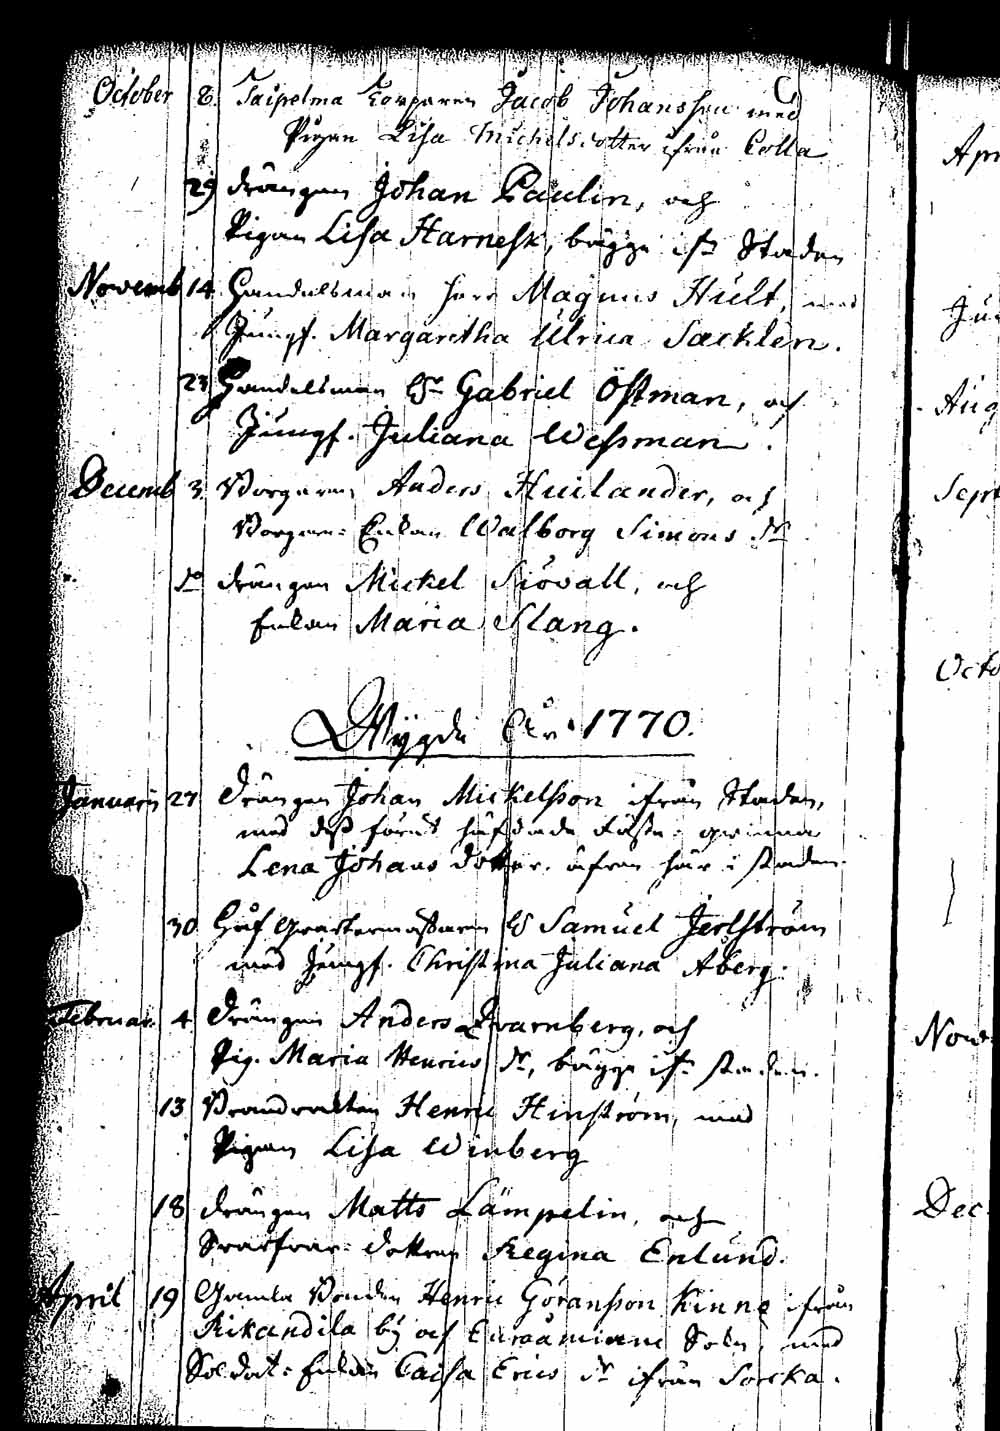 October 8. Saipelma Torparen Jacob Johansson med
Pigan Lisa Michelsdotter ifrån Colla
29 drängen Johan Paulin, och
Pigan Lisa Harnesk, bägge ifr Staden
Novemb 14 Handelsman Herr Magnus Hult, med
Jungf. Margaretha Ulrica Sacklén.
23 Handelsman Hr Gabriel Östman, och
Jungf. Juliana Wessman.
Decemb 3 Borgaren Anders Huilander, och
Borgare: Enkan Walborg Simons dr
do drängen Mickel Siövall, och
Enkan Maria Slang.
Wygde År 1770.
Januarii 27 Drängen Johan Mickelsson ifrån Staden,
med dess förut häfdade Fäste-qwinna
Lena Johans dotter, äfven här i staden.
30 Håf qvartermästaren H Samuel Jerlström
med Jungf. Christina Juliana Åberg.
Februar. 4 Drängen Anders Qvarnberg, och
Pig. Maria Henrics dr, bägge ifr staden.
13 Brandvakten Henric Hinström, med
Pigan Lisa Winberg
18 drängen Matts Lämpelin, och
Svarfvar-dottren Regina Enlund.
April 19 Gamla Bonden Henric Göransson Kinne ifrån
Kikandila by och Euraåminne Sokn, med
Soldat-Enkan Caisa Erics dr ifrån Sorcka.
Apri
Jul
Aug
Sept
Octo
Nov
Dec.